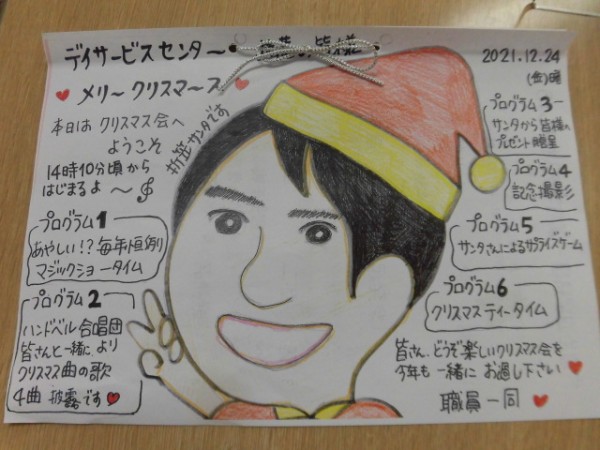 デイサービスセンター 皆様
2021.12.24
(金)曜
メリークリスマース
本日は クリスマス会へ
ようこそ
14時10分頃から
はじまるよ ～
サンタです
プログラム1
あやしい!? 毎年恒例
マジックショータイム
プログラム2
ハンドベル合唱団
皆さんと一緒に、より
クリスマス曲の歌
4曲 披露です
プログラム3
サンタから皆様へ
プレゼント贈呈
プログラム4
記念撮影
プログラム5
サンタさんによるサプライズゲーム
プログラム6
クリスマス ティータイム
皆さん、どうぞ楽しいクリスマス会を
今年も 一緒に お過し下さい
職員一同